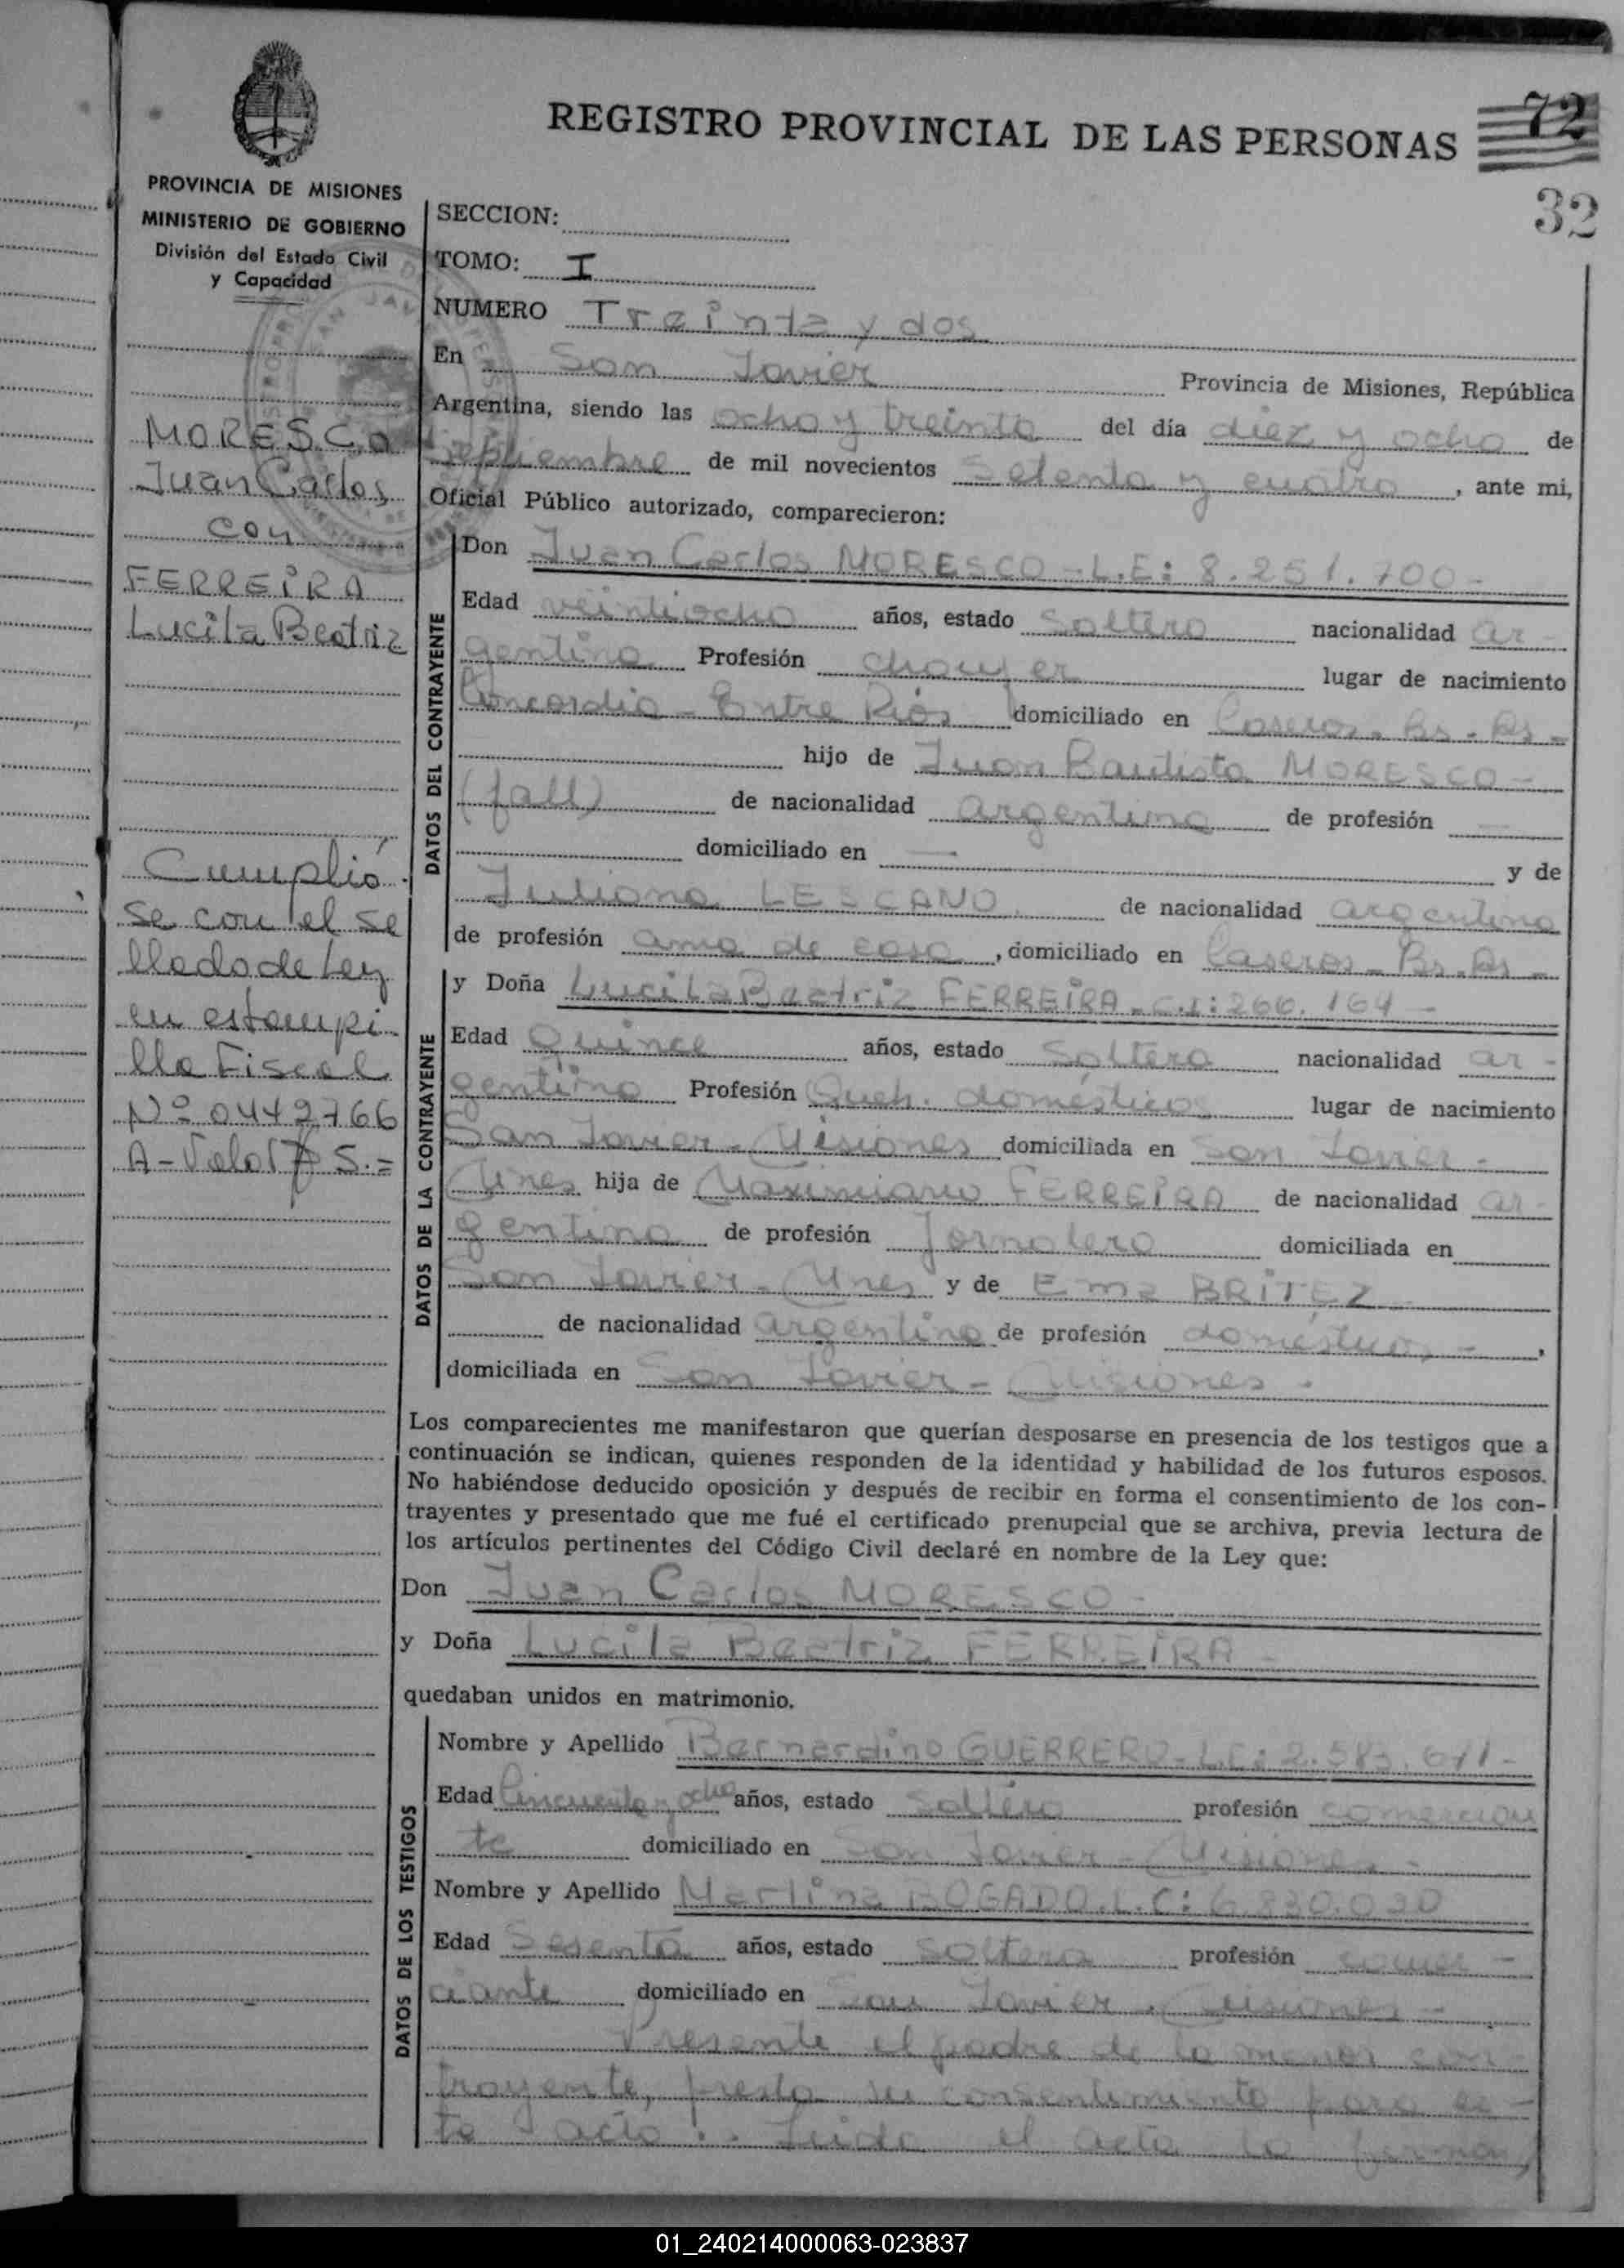 REGISTRO PROVINCIAL DE LAS PERSONAS
72
32
PROVINCIA DE MISIONES
MINISTERIO DE GOBIERNO
División del Estado Civil
y Capacidad
MORESCO
Juan Carlos
con
FERREIRA
Lucila Beatriz
Cumplió
se con el se
llado de Ley
en estampi
lla Fiscal
Nº 0442766
A-Valor $ 5.=
SECCION:
TOMO: I
NUMERO Treinta y dos
En San Javier Provincia de Misiones, República
Argentina, siendo las ocho y treinta del día diez y ocho de
septiembre de mil novecientos setenta y cuatro, ante mi,
Oficial Público autorizado, comparecieron:
DATOS DEL CONTRAYENTE
Don Juan Carlos MORESCO - L.E: 8.251.700-
Edad veintiocho años, estado soltero nacionalidad ar-
gentina Profesión chouyer lugar de nacimiento
Concordia - Entre Rios domiciliado en Caseros - Bs. As -
hijo de Juan Bautista MORESCO -
(fall) de nacionalidad argentina de profesión —
domiciliado en — y de
Juliana LESCANO de nacionalidad argentina
de profesión ama de casa, domiciliado en Caseros - Bs. As -
DATOS DE LA CONTRAYENTE
y Doña Lucila Beatriz FERREIRA - C.I: 266.164 -
Edad Quince años, estado soltera nacionalidad ar-
gentina Profesión Queh. domésticos lugar de nacimiento
San Javier - Misiones domiciliada en San Javier -
Mnes hija de Maximiano FERREIRA de nacionalidad ar-
gentina de profesión Jornalero domiciliada en
San Javier - Mnes y de Ema BRITEZ
de nacionalidad argentina de profesión domésticos -,
domiciliada en San Javier - Misiones -
Los comparecientes me manifestaron que querían desposarse en presencia de los testigos que a
continuación se indican, quienes responden de la identidad y habilidad de los futuros esposos.
No habiéndose deducido oposición y después de recibir en forma el consentimiento de los con-
trayentes y presentado que me fué el certificado prenupcial que se archiva, previa lectura de
los artículos pertinentes del Código Civil declaré en nombre de la Ley que:
Don Juan Carlos MORESCO -
y Doña Lucila Beatriz FERREIRA -
quedaban unidos en matrimonio.
DATOS DE LOS TESTIGOS
Nombre y Apellido Bernardino GUERRERO - L.E: 2.583.671-
Edad Cincuenta y ocho años, estado soltero profesión comercian
te domiciliado en San Javier - Misiones -
Nombre y Apellido Martina BOGADO. L.C: 6.830.030
Edad Sesenta años, estado soltera profesión comer-
ciante domiciliado en San Javier - Misiones -
Presente el padre de la menor con-
trayente, presta su consentimiento para es-
te acto.. Leída el acta la firman
01_240214000063-023837